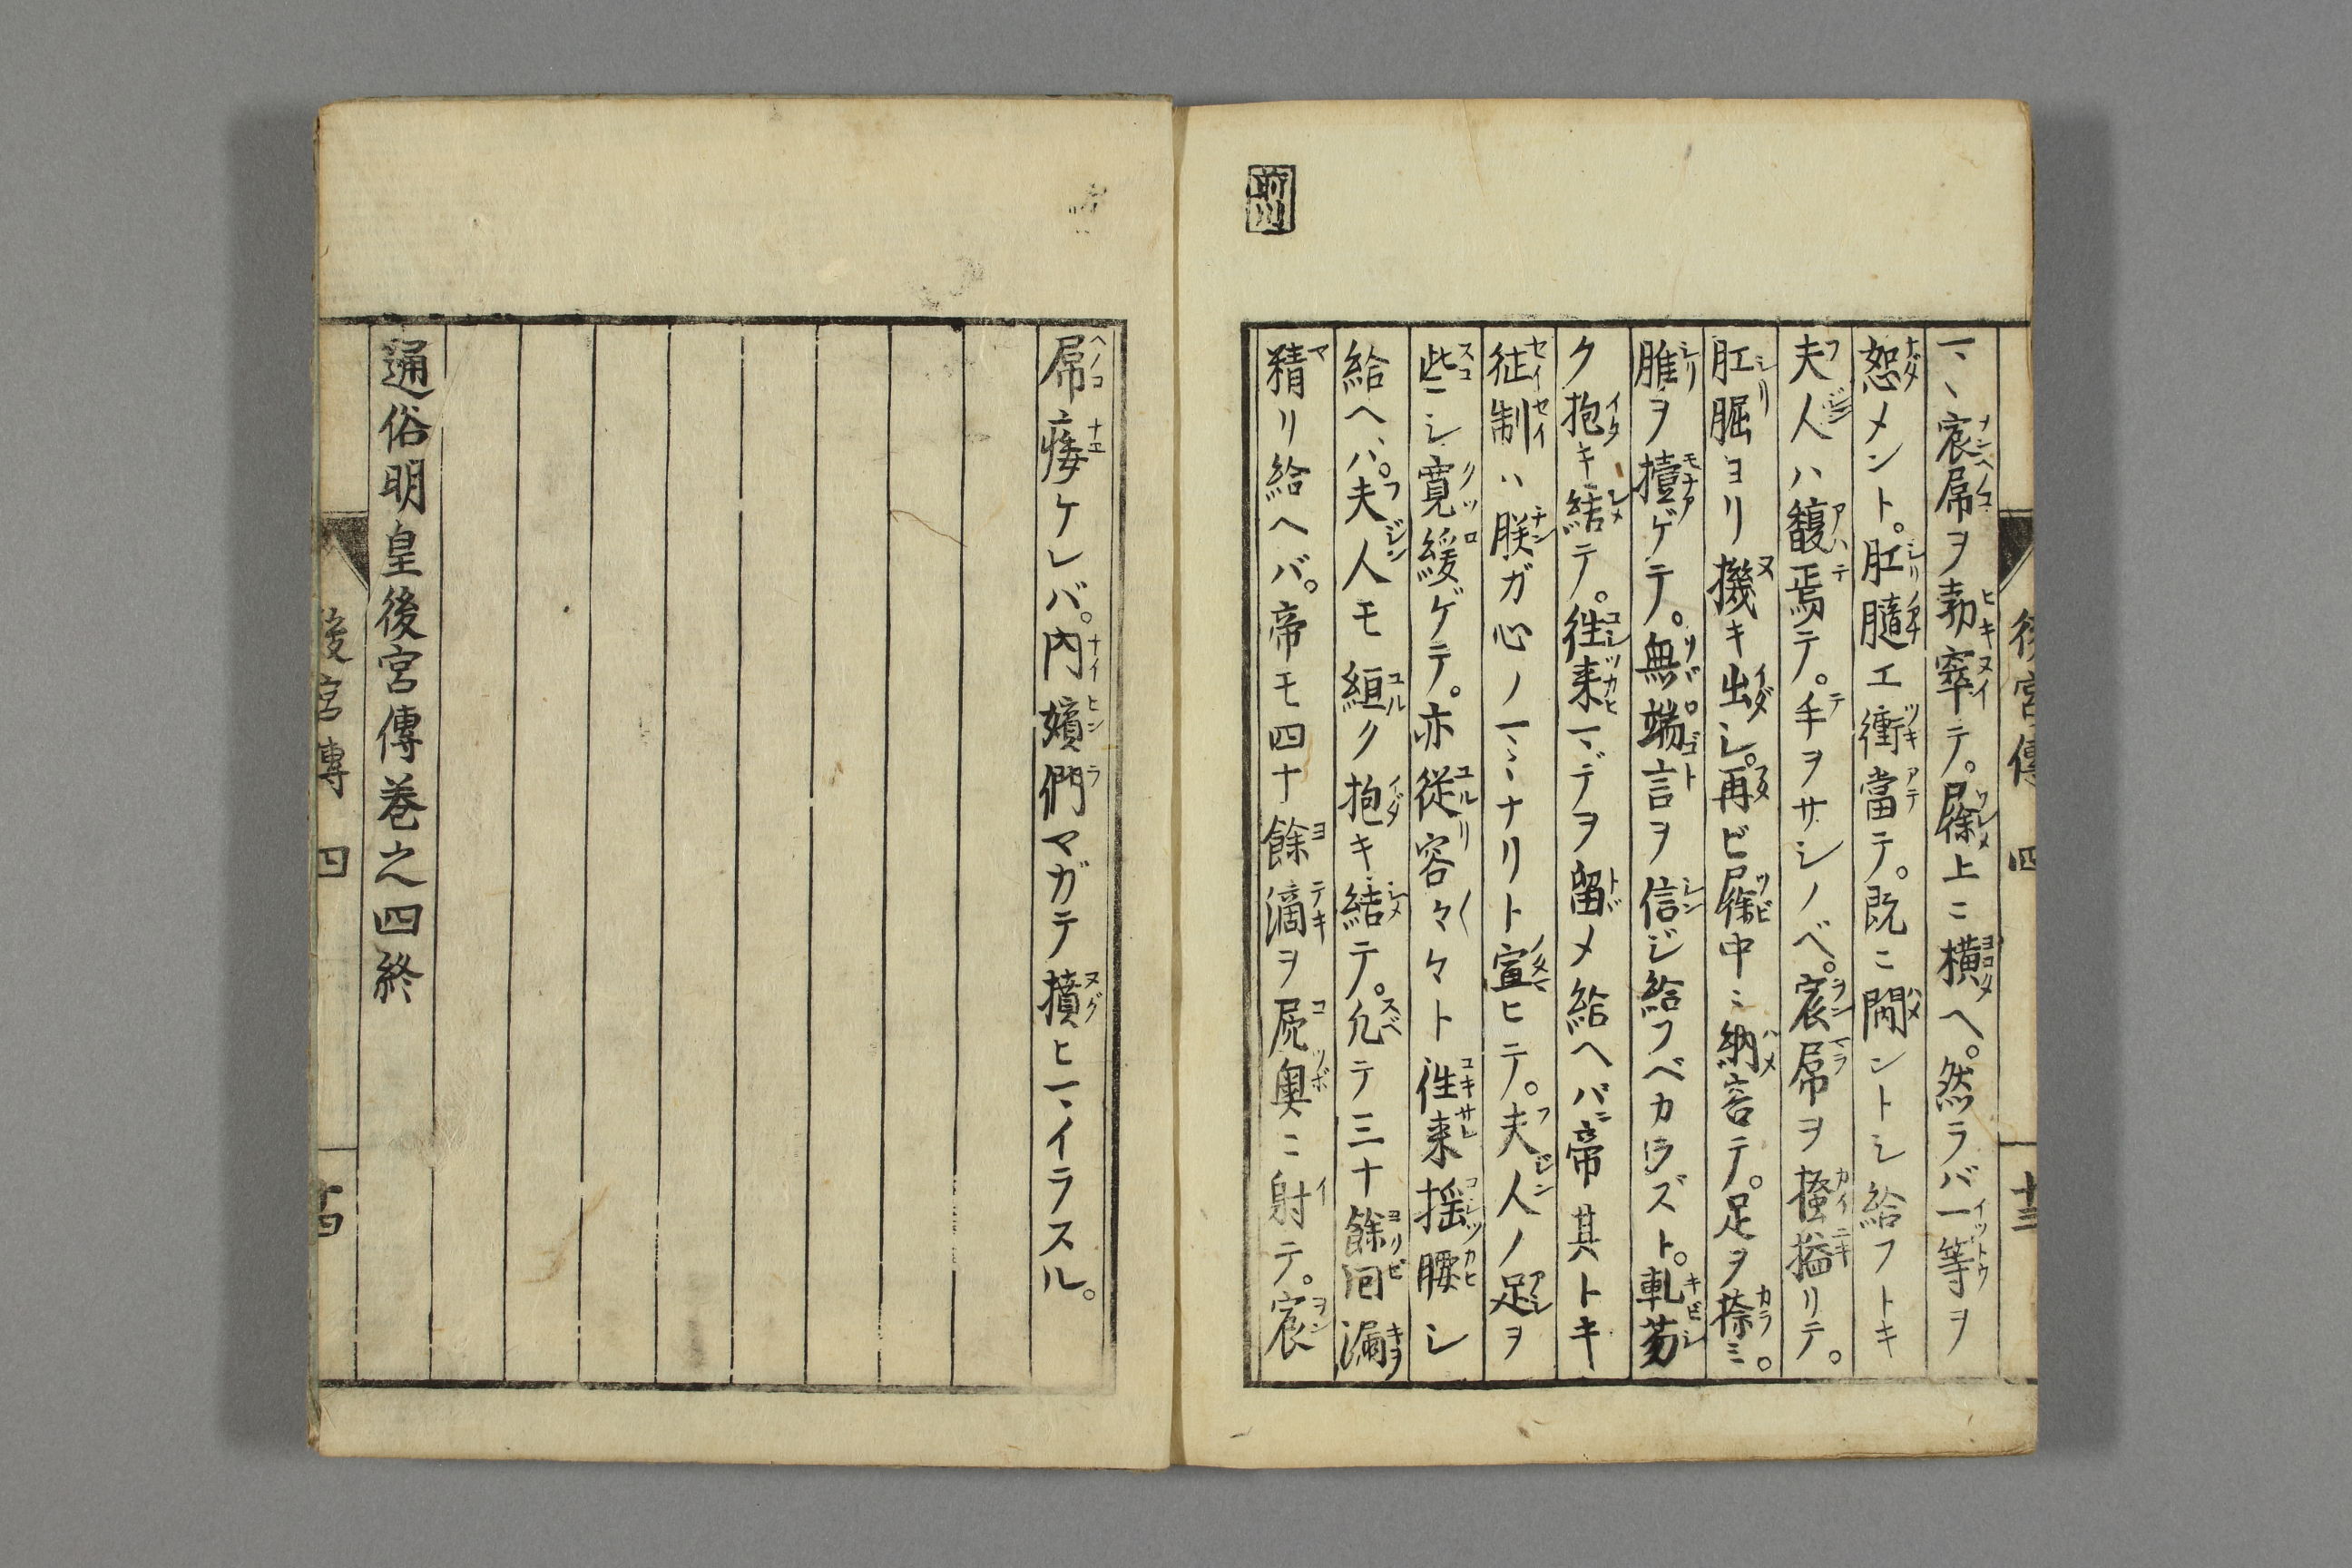 後宮傳 四 十三
一ヽ宸𡱖ヲ勃窣テ。上ニ横ヘ。然ラバ一等ヲ
恕メント。肛膸エ衝當テ。既ニ閙ントシ給フトキ
夫人ハ馥焉テ。手ヲサシノベ。宸ヲ掻搤リテ。
肛䐇ヨリ機キ出シ。再ビ中ニ納容テ。足ヲ捺ミ。
脽ヲ擡ゲテ。無端言ヲ信ジ給フベカラズト。軋芴
ク抱キ結テ。徃来一デヲ留メ給ヘバ帝其トキ
征制ハ朕ガ心ノ一ヽナリト宣ヒテ。夫人ノ足ヲ
些ニシ寛緩ゲテ。亦従容々々ト徃来揺腰シ
給ヘハ。夫人モ緪ク抱キ結テ。允テ三十餘回漏
精リ給ヘバ。帝モ四十餘滴ヲ屍奥ニ射テ。宸
痿ケレバ。内嬪們マガテ擯ヒ一ヽイラスル。
通俗明皇後宮傳巻之四終
後宮傳 四 十四